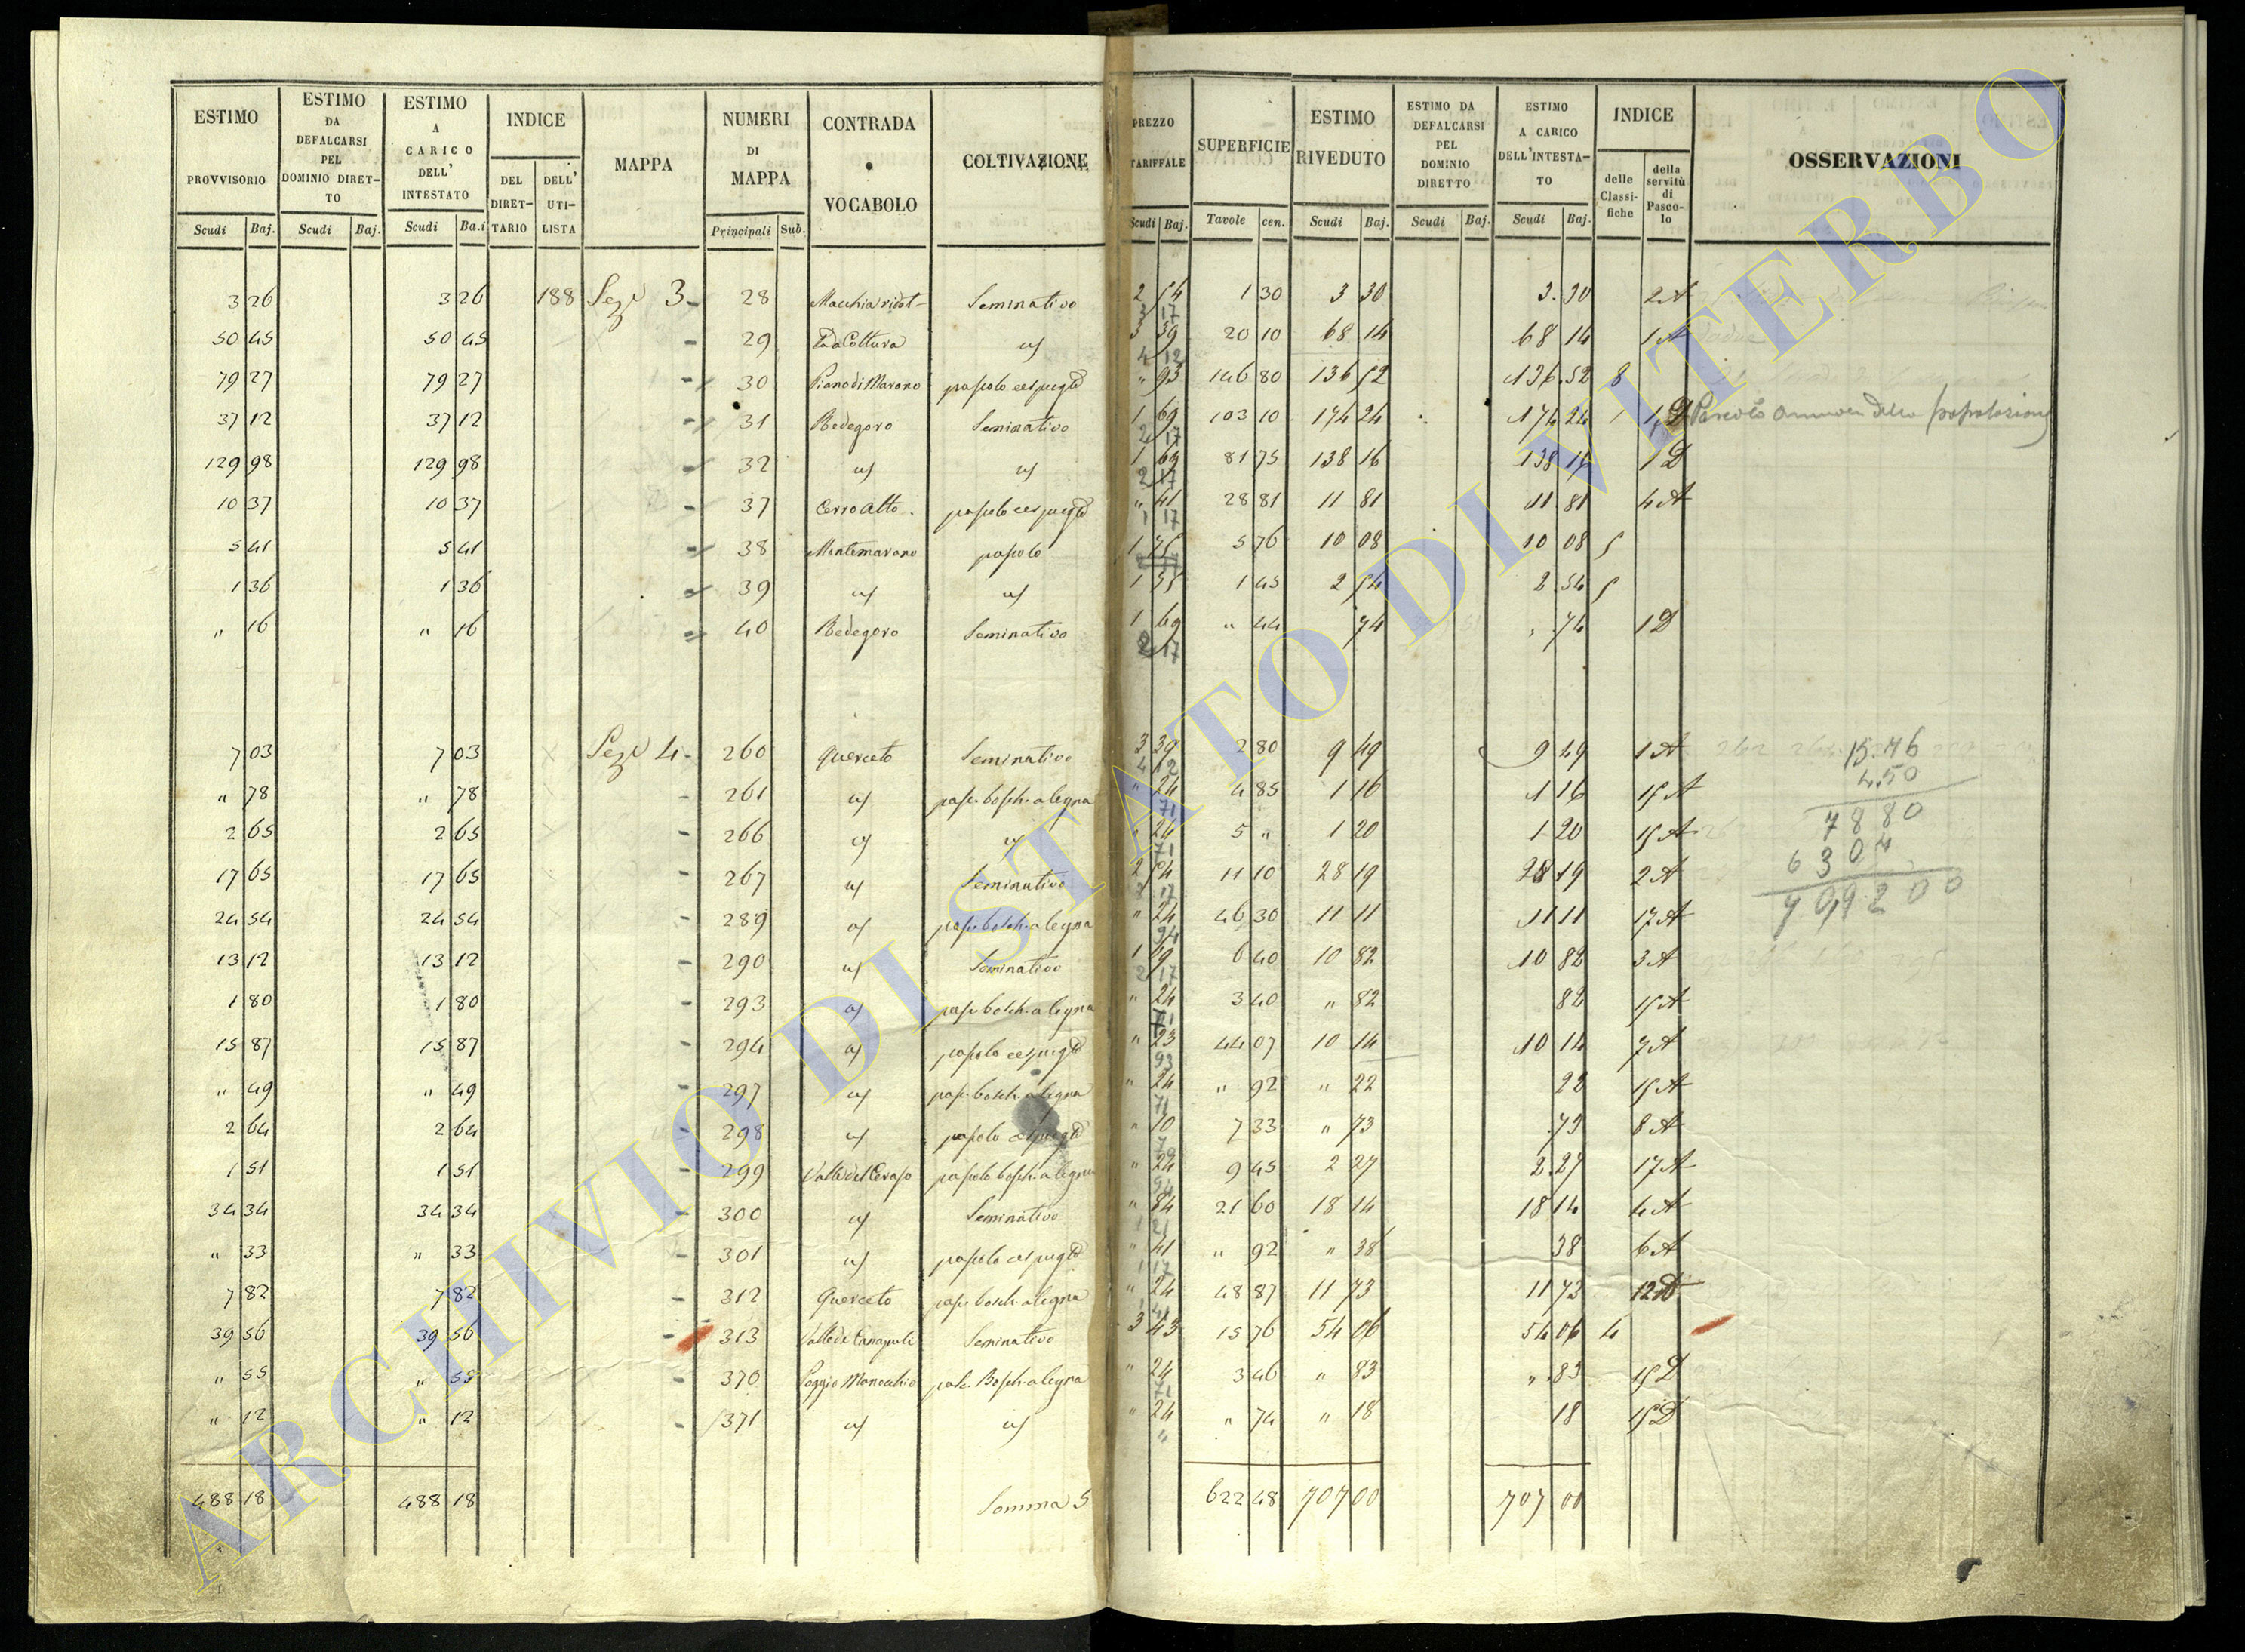 ESTIMO PROVVISORIO | ESTIMO DA DEFALCARSI PEL DOMINIO DIRETTO | ESTIMO A CARICO DELL' INTESTATO | INDICE | MAPPA | NUMERI DI MAPPA | CONTRADA o VOCABOLO | COLTIVAZIONE | PREZZO TARIFFALE | SUPERFICIE | ESTIMO RIVEDUTO | ESTIMO DA DEFALCARSI PEL DOMINIO DIRETTO | ESTIMO A CARICO DELL'INTESTATO | INDICE | OSSERVAZIONI
DEL DIRETTARIO | DELL' UTILISTA | delle Classifiche | della servitù di Pascolo
Scudi Baj. | Scudi Baj. | Scudi Ba.i | Principali Sub. | Scudi Baj. | Tavole cen. | Scudi Baj. | Scudi Baj. | Scudi Baj.
3 26 | 3 26 | 188 | Sez. 3 | 28 | Seminativo | 2 54 | 1 30 | 3 30 | 3.30 | 2 A
3 17
50 45 | 50 45 | 29 | La Cottura | " | 3 39 | 20 10 | 68 14 | 68 14 | 1 A
4 12
79 27 | 79 27 | 30 | Piano di Marano | pascolo cespugto | " 93 | 146 80 | 136 52 | 136.52 | 8
37 12 | 37 12 | 31 | Redegoro | Seminativo | 1 69 | 103 10 | 174 24 | 174 24 | 1 D
2 17
129 98 | 129 98 | 32 | " | " | 1 69 | 81 75 | 138 16 | 138 16 | 1 D
2 17
10 37 | 10 37 | 37 | Cerro Alto | pascolo cespugto | " 41 | 28 81 | 11 81 | 11 81 | 4 A
1 17
5 41 | 5 41 | 38 | Montemarano | pascolo | 1 75 | 5 76 | 10 08 | 10 08 | 5
1 36 | 1 36 | 39 | " | " | 1 75 | 1 45 | 2 54 | 2.54 | 5
" 16 | " 16 | 40 | Redegoro | Seminativo | 1 69 | " 44 | 74 | 74 | 1 D
2 17
7 03 | 7 03 | Sez. 4 | 260 | Querceto | Seminativo | 3 39 | 2 80 | 9 49 | 9 49 | 1 A | 15.76
4 12 | 4.50
" 78 | " 78 | 261 | " | pasc. bosch. a legna | " 24 | 4 85 | 1 16 | 1 16 | 15 A | 7880
71
2 65 | 2 65 | 266 | " | " | " 24 | 5 " | 1 20 | 1 20 | 15 A | 6304
71
17 65 | 17 65 | 267 | " | Seminativo | 2 54 | 11 10 | 28 19 | 28 19 | 2 A | 709200
3 17
24 54 | 24 54 | 289 | " | pasc. bosch. a legna | " 24 | 46 30 | 11 11 | 11 11 | 17 A
94
13 12 | 13 12 | 290 | " | Seminativo | 1 69 | 6 40 | 10 82 | 10 82 | 3 A
2 17
1 80 | 1 80 | 293 | " | pasc. bosch. a legna | " 24 | 3 40 | " 82 | 82 | 15 A
71
15 87 | 15 87 | 294 | " | pascolo cespugto | " 23 | 44 07 | 10 14 | 10 14 | 7 A
93
" 49 | " 49 | 297 | " | pasc. bosch. a legna | " 24 | " 92 | " 22 | 22 | 15 A
71
2 64 | 2 64 | 298 | " | pascolo cespugto | " 10 | 7 33 | " 73 | 73 | 8 A
1 51 | 1 51 | 299 | Valle del Ceraso | pascolo bosch. a legna | " 24 | 9 45 | 2 27 | 2.27 | 17 A
94
34 34 | 34 34 | 300 | " | Seminativo | " 84 | 21 60 | 18 14 | 18 14 | 4 A
" 33 | " 33 | 301 | " | pascolo cespugto | " 41 | " 92 | " 38 | 38 | 6 A
1 17
7 82 | 7 82 | 312 | Querceto | pasc. bosch. a legna | " 24 | 48 87 | 11 73 | 11 73 | 12 A
39 56 | 39 56 | 313 | Seminativo | 3 43 | 15 76 | 54 06 | 54 06 | 4
" 55 | " 55 | 370 | Poggio Monacchio | pasc. Bosch. a legna | " 24 | 3 46 | " 83 | " 83 | 15 D
71
" 12 | " 12 | 371 | " | " | " 24 | " 74 | " 18 | 18 | 15 D
488 18 | 488 18 | Somma S | 622 48 | 707 00 | 707 00
ARCHIVIO DI STATO DI VITERBO